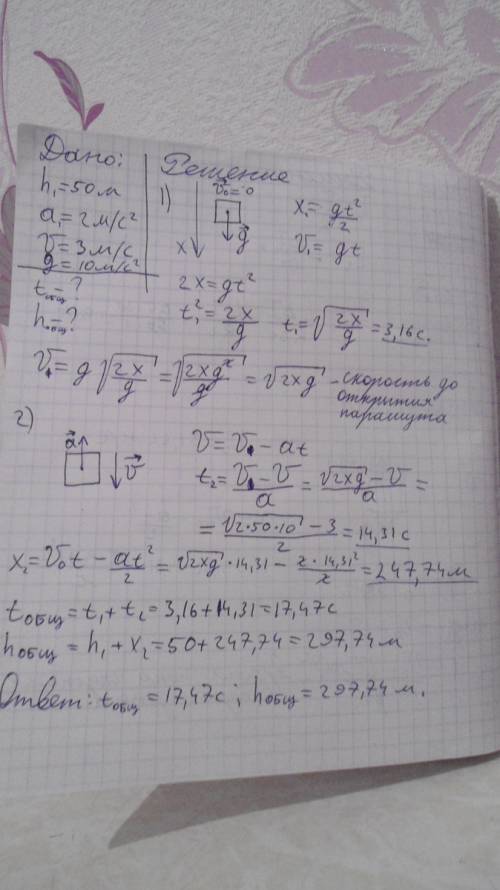 Дано:
h₁=50м
a₁=2м/с²
v=3м/с
g=10м/с²
tобщ=?
hобщ=?
Решение
1)
v₀=0
g
x
x₁=gt²/2
v₁=gt
2x=gt²
t₁²=2x/g
t₁=√(2x/g)=3,16с.
v₁=g√(2x/g)=√(2xg²/g)=√(2xg) – скорость до
открытия
парашута
2)
a
v
v=v₁-at
t₂=(v₁-v)/a=(√(2xg)-v)/a=
=(√(2·50·10)-3)/2=14,31с
x₂=v₀t-at²/2=√(2xg)·14,31-2·14,31²/2=247,74м
tобщ=t₁+t₂=3,16+14,31=17,47с
hобщ=h₁+x₂=50+247,74=297,74м
Ответ: tобщ=17,47с; hобщ=297,74м.